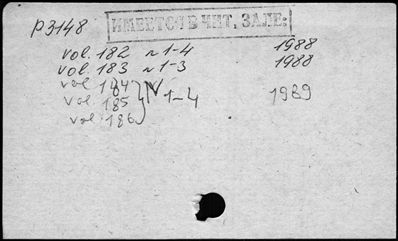 P3148
ИМЕЕТСЯ В ЧИТ. ЗАЛЕ:
vol. 182 N 1-4 1988
vol. 183 N 1-3 1988
vol 184
vol 185 } N 1-4 1989
vol 186